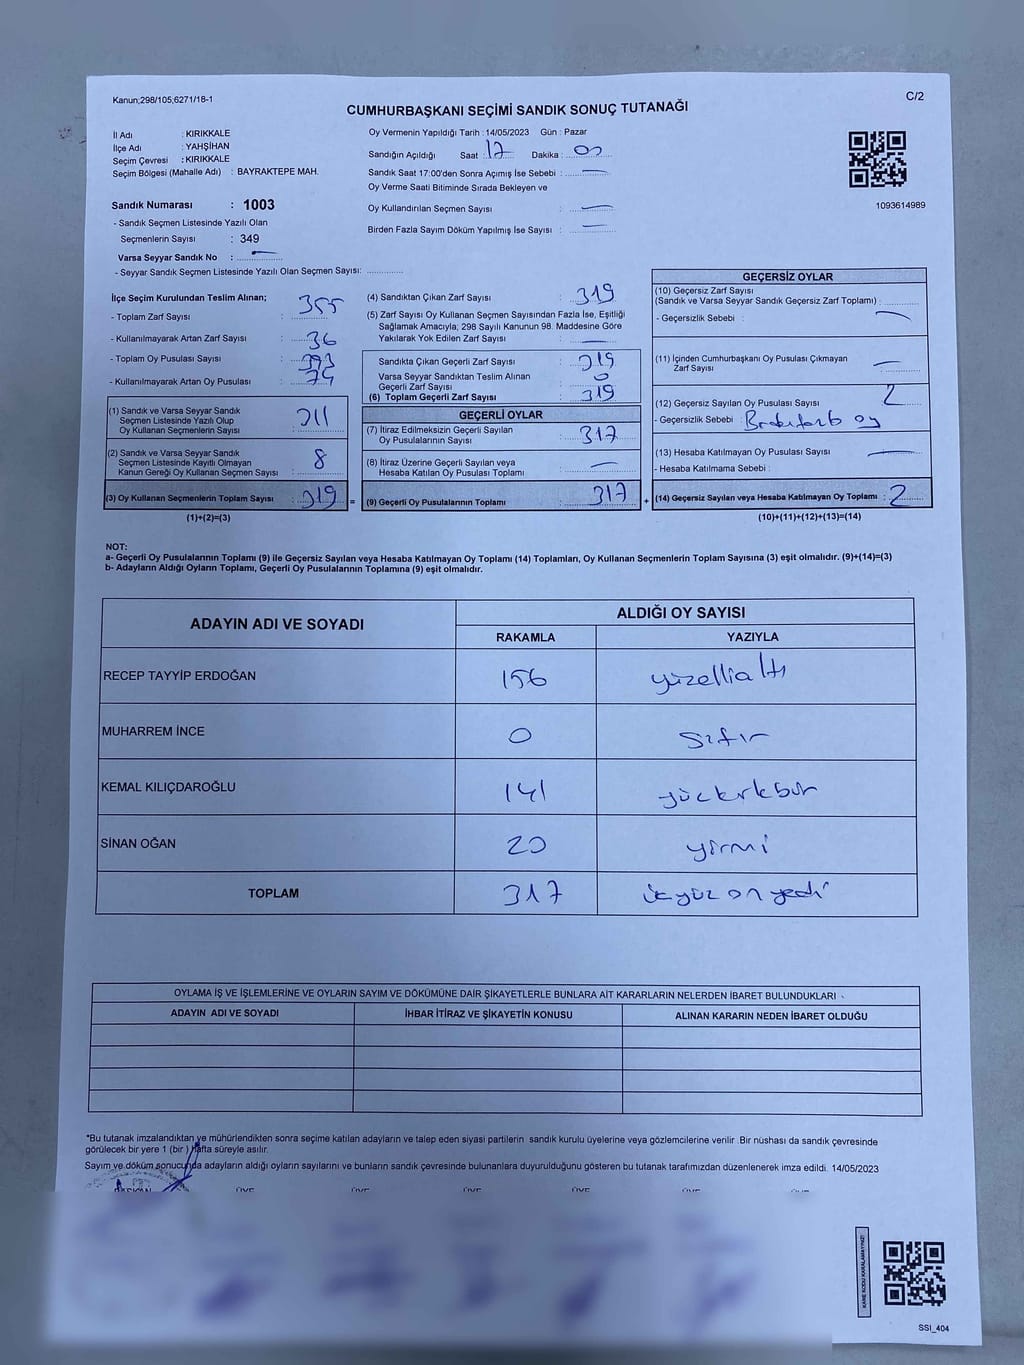 Kanun;298/105;6271/18-1
C/2
CUMHURBAŞKANI SEÇİMİ SANDIK SONUÇ TUTANAĞI
İl Adı : KIRIKKALE
İlçe Adı : YAHŞİHAN
Seçim Çevresi : KIRIKKALE
Seçim Bölgesi (Mahalle Adı) : BAYRAKTEPE MAH.
Sandık Numarası : 1003
- Sandık Seçmen Listesinde Yazılı Olan
Seçmenlerin Sayısı : 349
Varsa Seyyar Sandık No :
- Seyyar Sandık Seçmen Listesinde Yazılı Olan Seçmen Sayısı:
Oy Vermenin Yapıldığı Tarih : 14/05/2023 Gün : Pazar
Sandığın Açıldığı Saat : 17 Dakika : 00
Sandık Saat 17:00'den Sonra Açımış İse Sebebi :
Oy Verme Saati Bitiminde Sırada Bekleyen ve
Oy Kullandırılan Seçmen Sayısı :
Birden Fazla Sayım Döküm Yapılmış İse Sayısı :
1093614989
İlçe Seçim Kurulundan Teslim Alınan;
- Toplam Zarf Sayısı : 355
- Kullanılmayarak Artan Zarf Sayısı : 36
- Toplam Oy Pusulası Sayısı : 393
- Kullanılmayarak Artan Oy Pusulası : 74
(1) Sandık ve Varsa Seyyar Sandık
Seçmen Listesinde Yazılı Olup
Oy Kullanan Seçmenlerin Sayısı : 311
(2) Sandık ve Varsa Seyyar Sandık
Seçmen Listesinde Kayıtlı Olmayan
Kanun Gereği Oy Kullanan Seçmen Sayısı : 8
(3) Oy Kullanan Seçmenlerin Toplam Sayısı : 319 =
(1)+(2)=(3)
(4) Sandıktan Çıkan Zarf Sayısı : 319
(5) Zarf Sayısı Oy Kullanan Seçmen Sayısından Fazla İse, Eşitliği
Sağlamak Amacıyla; 298 Sayılı Kanunun 98. Maddesine Göre
Yakılarak Yok Edilen Zarf Sayısı :
Sandıkta Çıkan Geçerli Zarf Sayısı : 319
Varsa Seyyar Sandıktan Teslim Alınan
Geçerli Zarf Sayısı : 0
(6) Toplam Geçerli Zarf Sayısı : 319
GEÇERLİ OYLAR
(7) İtiraz Edilmeksizin Geçerli Sayılan
Oy Pusulalarının Sayısı : 317
(8) İtiraz Üzerine Geçerli Sayılan veya
Hesaba Katılan Oy Pusulası Toplamı :
(9) Geçerli Oy Pusulalarının Toplamı : 317 +
GEÇERSİZ OYLAR
(10) Geçersiz Zarf Sayısı
(Sandık ve Varsa Seyyar Sandık Geçersiz Zarf Toplamı) :
- Geçersizlik Sebebi :
(11) İçinden Cumhurbaşkanı Oy Pusulası Çıkmayan
Zarf Sayısı :
(12) Geçersiz Sayılan Oy Pusulası Sayısı : 2
- Geçersizlik Sebebi : oy
(13) Hesaba Katılmayan Oy Pusulası Sayısı :
- Hesaba Katılmama Sebebi :
(14) Geçersiz Sayılan veya Hesaba Katılmayan Oy Toplamı : 2
(10)+(11)+(12)+(13)=(14)
NOT:
a- Geçerli Oy Pusulalarının Toplamı (9) ile Geçersiz Sayılan veya Hesaba Katılmayan Oy Toplamı (14) Toplamları, Oy Kullanan Seçmenlerin Toplam Sayısına (3) eşit olmalıdır. (9)+(14)=(3)
b- Adayların Aldığı Oyların Toplamı, Geçerli Oy Pusulalarının Toplamına (9) eşit olmalıdır.
ADAYIN ADI VE SOYADI ALDIĞI OY SAYISI
RAKAMLA YAZIYLA
RECEP TAYYİP ERDOĞAN 156 yüzellialtı
MUHARREM İNCE 0 sıfır
KEMAL KILIÇDAROĞLU 141 yüzkırkbir
SİNAN OĞAN 20 yirmi
TOPLAM 317 üçyüz on yedi
OYLAMA İŞ VE İŞLEMLERİNE VE OYLARIN SAYIM VE DÖKÜMÜNE DAİR ŞİKAYETLERLE BUNLARA AİT KARARLARIN NELERDEN İBARET BULUNDUKLARI
ADAYIN ADI VE SOYADI İHBAR İTİRAZ VE ŞİKAYETİN KONUSU ALINAN KARARIN NEDEN İBARET OLDUĞU
*Bu tutanak imzalandıktan ve mühürlendikten sonra seçime katılan adayların ve talep eden siyasi partilerin sandık kurulu üyelerine veya gözlemcilerine verilir .Bir nüshası da sandık çevresinde
görülecek bir yere 1 (bir ) hafta süreyle asılır.
Sayım ve döküm sonucunda adayların aldığı oyların sayılarını ve bunların sandık çevresinde bulunanlara duyurulduğunu gösteren bu tutanak tarafımızdan düzenlenerek imza edildi. 14/05/2023
BAŞKAN ÜYE ÜYE ÜYE ÜYE ÜYE ÜYE
KARE KODU KARALAMAYINIZ!
SSI_404